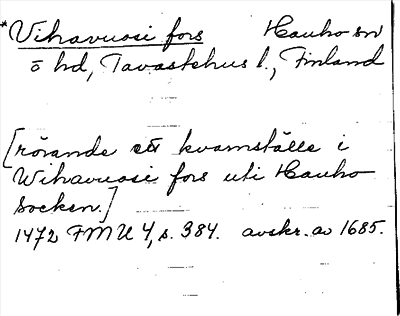 *Vihavuosi fors Hauho sn
ö hd, Tavastehus l., Finland
[rörande ett kvarnställe i
Wihavuosi fors uti Hauho
Socken.]
1472 FMU 4, s. 384. avskr. av 1685.